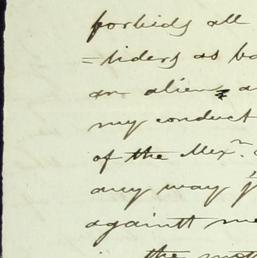 forbids all
=siders as
an alien, a
my conduct
of the Mexn.
any way
against me
in the